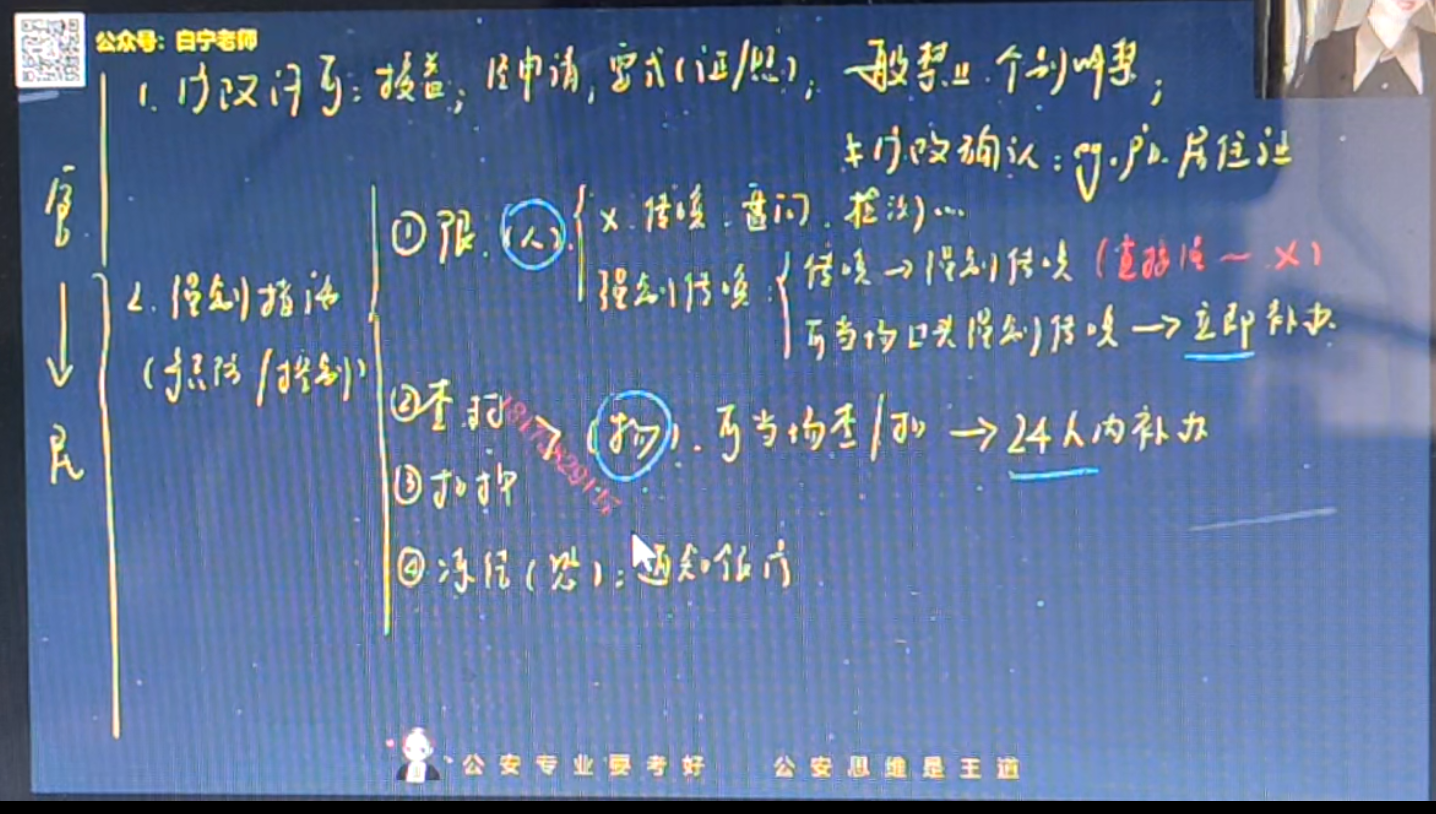 公众号：白宁老师
1. 行政许可：授益；依申请，要式(证/照)；一般禁止.个别解禁；
≠行政确认：eg.户口.居住证
官
↓
民
2. 强制措施
(预防/控制)
①限.(人).
×.传唤.盘问.检测...
强制传唤：
传唤→强制传唤(直接强~ ×)
可当场口头强制传唤→立即补办.
②查封
③扣押
(物).可当场查/扣→24h内补办
④冻结(款)：通知银行
公安专业要考好 公安思维是王道